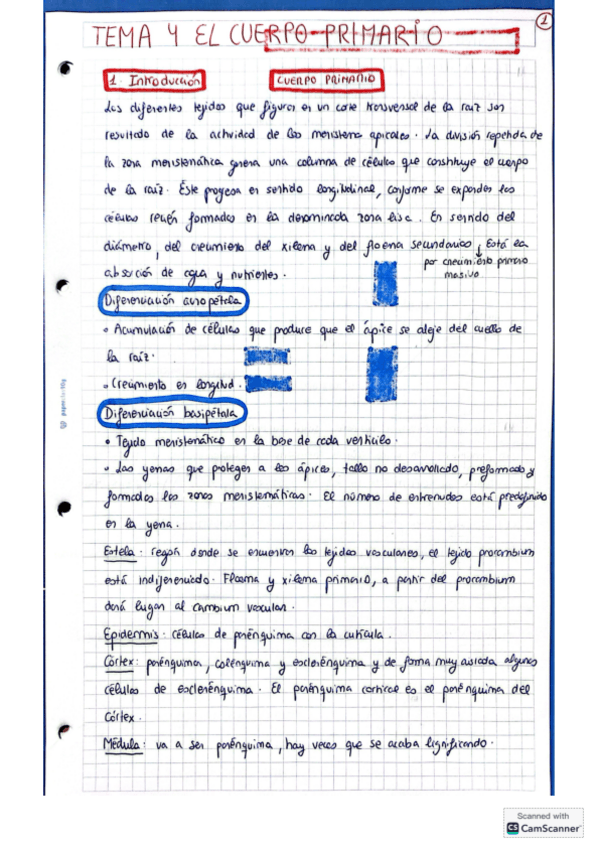 1
TEMA 4 EL CUERPO PRIMARIO
1. Introducción
CUERPO PRIMARIO
Los diferentes tejidos que figuran en un corte transversal de la raíz son
resultado de la actividad de los meristemo apicales. La división repetida de
la zona meristemática genera una columna de células que constituye el cuerpo
de la raíz. Éste progresa en sentido longitudinal, conforme se expanden las
células recién formadas en la denominada zona lisa. En sentido del
diámetro, del crecimiento del xilema y del floema secundarios, Está la
por crecimiento primario
absorción de agua y nutrientes.
masivo
Diferenciación acropétala
• Acumulación de células que produce que el ápice se aleje del cuello de
la raíz.
• Crecimiento en longitud.
Diferenciación basipétala
• Tejido meristemático en la base de cada verticilo.
• Las yemas que protegen a los ápices, tallo no desarrollado, preformado y
formados las zonas meristemáticas. El número de entrenudos está predefinido
en la yema.
Estela: región donde se encuentran los tejidos vasculares, el tejido procambium
está indiferenciado. Floema y xilema primario, a partir del procambium
dará lugar al cambium vascular.
Epidermis: células de parénquima con la cutícula.
Córtex: parénquima, colénquima y esclerénquima y de forma muy aislada algunas
células de esclerénquima. El parénquima cortical es el parénquima del
Córtex.
Médula: va a ser parénquima, hay veces que se acaba lignificando.
Scanned with
CS CamScanner